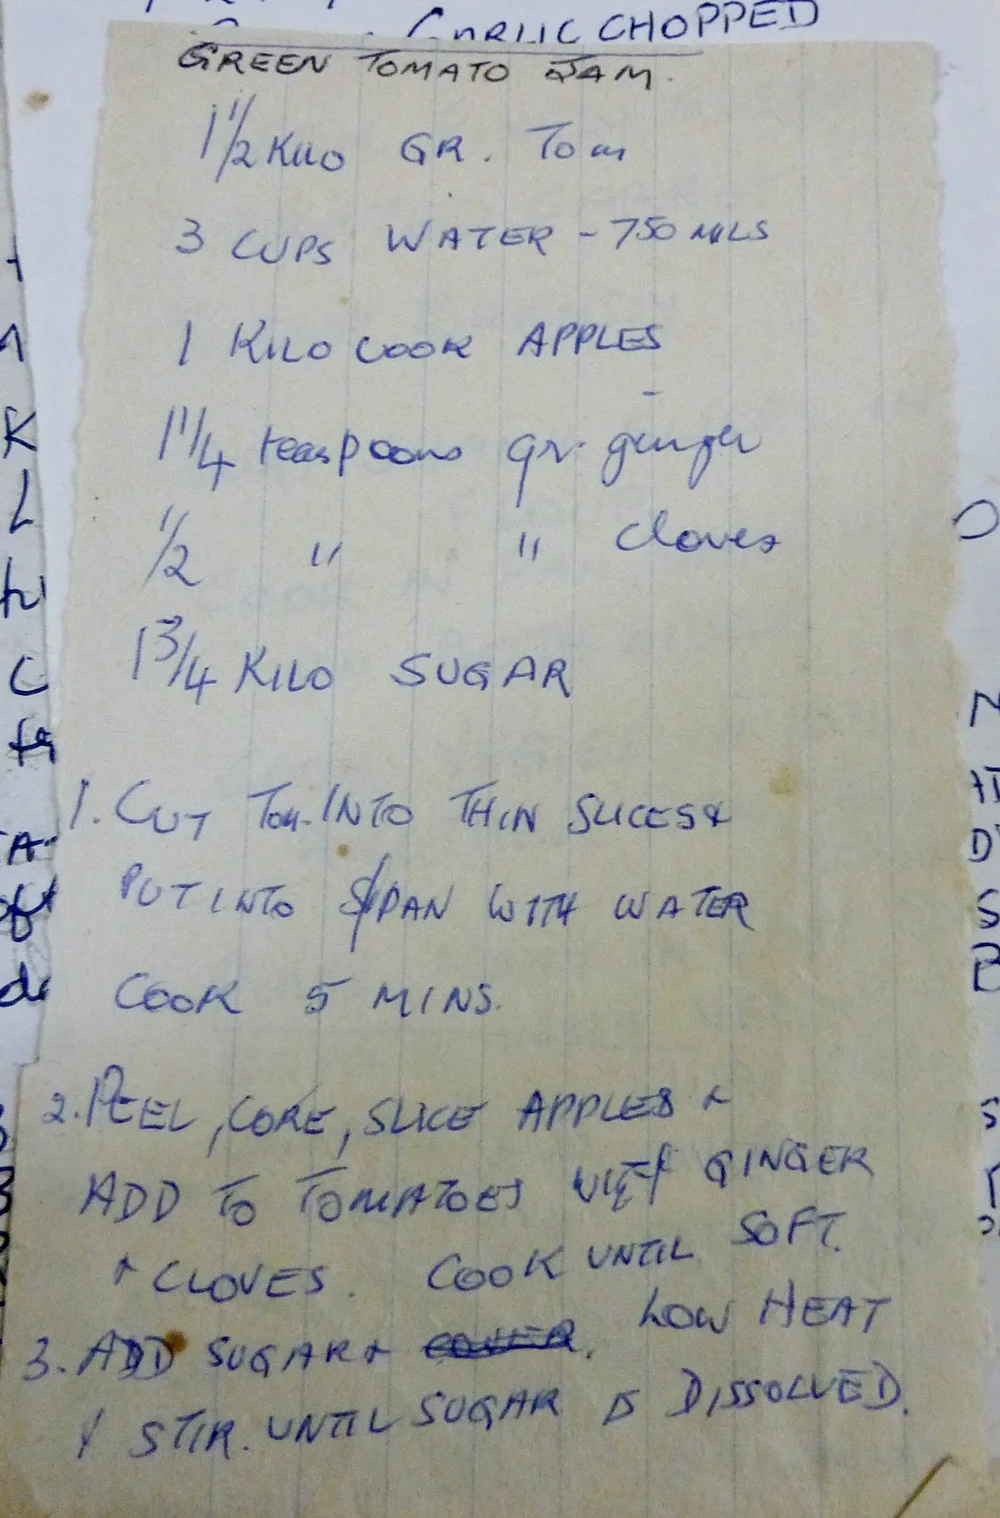 GARLIC CHOPPED
GREEN TOMATO JAM.
1 1/2 KILO GR. TOM
3 CUPS WATER - 750 MLS
1 KILO COOK APPLES
1 1/4 teaspoons gr. ginger
1/2 " " cloves
1 3/4 KILO SUGAR
1. CUT TOM. INTO THIN SLICES &
PUT INTO S/PAN WITH WATER
COOK 5 MINS.
2. PEEL, CORE, SLICE APPLES &
ADD TO TOMATOES WITH GINGER
& CLOVES. COOK UNTIL SOFT.
3. ADD SUGAR & COVER. LOW HEAT
& STIR. UNTIL SUGAR IS DISSOLVED.